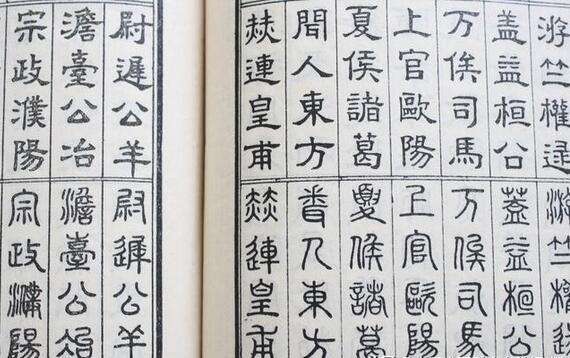 游竺權逯
盖益桓公
万俟司馬
上官歐陽
夏侯諸葛
聞人東方
赫連皇甫
游竺權
蓋益桓公
万俟司馬
上官歐陽
夏侯諸葛
聞人東方
赫連皇甫
尉遲公羊
澹臺公冶
宗政濮陽
尉遲公羊
澹臺公冶
宗政濮陽